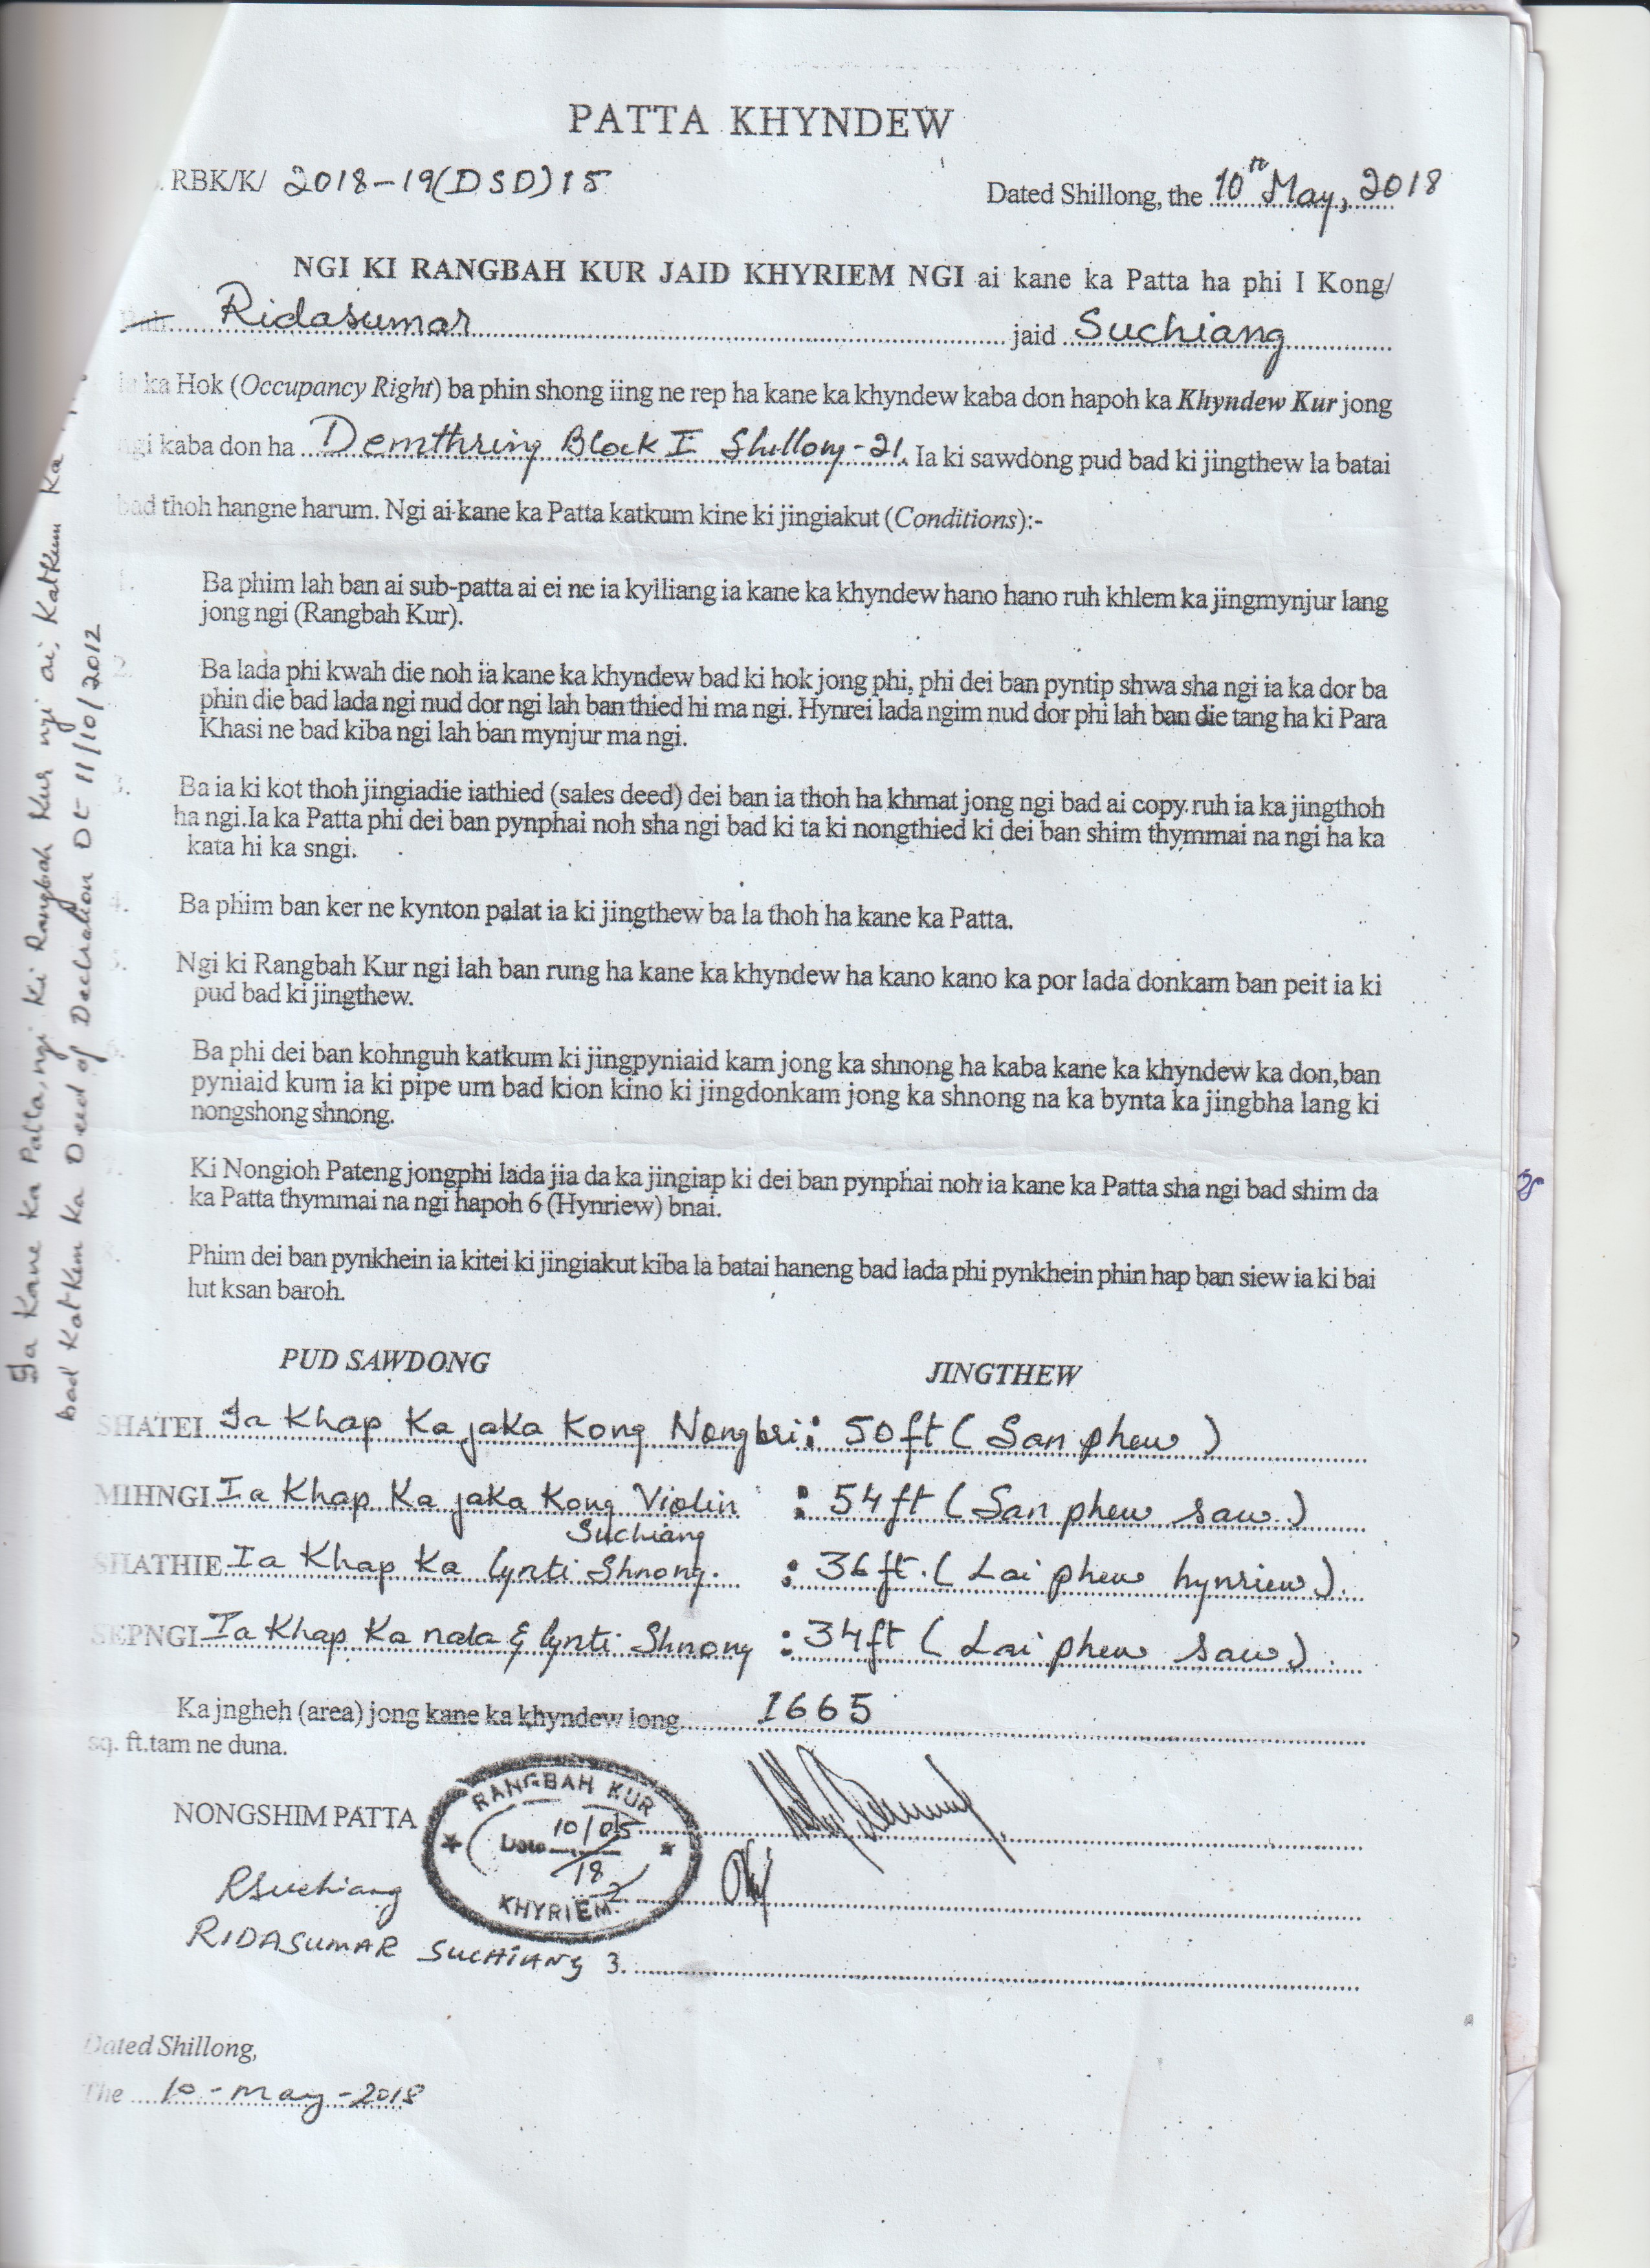 PATTA KHYNDEW
. RBK/K/ 2018-19(DSD)15
Dated Shillong, the 10th May, 2018
NGI KI RANGBAH KUR JAID KHYRIEM NGI ai kane ka Patta ha phi I Kong/
Ridasumar jaid Suchiang
ia ka Hok (Occupancy Right) ba phin shong iing ne rep ha kane ka khyndew kaba don hapoh ka Khyndew Kur jong
ngi kaba don ha Demthring Block I Shillong-21. Ia ki sawdong pud bad ki jingthew la batai
bad thoh hangne harum. Ngi ai kane ka Patta katkum kine ki jingiakut (Conditions):-
1. Ba phim lah ban ai sub-patta ai ei ne ia kylliang ia kane ka khyndew hano hano ruh khlem ka jingmynjur lang
jong ngi (Rangbah Kur).
2. Ba lada phi kwah die noh ia kane ka khyndew bad ki hok jong phi, phi dei ban pyntip shwa sha ngi ia ka dor ba
phin die bad lada ngi nud dor ngi lah ban thied hi ma ngi. Hynrei lada ngim nud dor phi lah ban die tang ha ki Para
Khasi ne bad kiba ngi lah ban mynjur ma ngi.
3. Ba ia ki kot thoh jingiadie iathied (sales deed) dei ban ia thoh ha khmat jong ngi bad ai copy ruh ia ka jingthoh
ha ngi. Ia ka Patta phi dei ban pynphai noh sha ngi bad ki ta ki nongthied ki dei ban shim thymmai na ngi ha ka
kata hi ka sngi.
4. Ba phim ban ker ne kynton palat ia ki jingthew ba la thoh ha kane ka Patta.
5. Ngi ki Rangbah Kur ngi lah ban rung ha kane ka khyndew ha kano kano ka por lada donkam ban peit ia ki
pud bad ki jingthew.
6. Ba phi dei ban kohnguh katkum ki jingpyniaid kam jong ka shnong ha kaba kane ka khyndew ka don,ban
pyniaid kum ia ki pipe um bad kion kino ki jingdonkam jong ka shnong na ka bynta ka jingbha lang ki
nongshong shnong.
7. Ki Nongioh Pateng jongphi lada jia da ka jingiap ki dei ban pynphai noh ia kane ka Patta sha ngi bad shim da
ka Patta thymmai na ngi hapoh 6 (Hynriew) bnai.
Phim dei ban pynkhein ia kitei ki jingiakut kiba la batai haneng bad lada phi pynkhein phin hap ban siew ia ki bai
lut ksan baroh.
PUD SAWDONG JINGTHEW
SHATEI Ia Khap Ka jaka Kong Nongbri : 50ft ( San phew )
MIHNGI Ia Khap Ka jaka Kong Violin : 54ft ( San phew saw )
Suchiang
SHATHIE Ia Khap Ka lynti Shnong. : 36ft. ( Lai phew hynriew ).
SEPNGI Ia Khap Ka nala & lynti Shnong : 34ft ( Lai phew saw ).
Ka jngheh (area) jong kane ka khyndew long 1665
sq. ft.tam ne duna.
NONGSHIM PATTA
RANGBAH KUR
Date 10/05
18
2
KHYRIEM
RSuchiang
RIDASUMAR SUCHIANG 3.
Dated Shillong,
The 10-May-2018
Ia Kane Ka Patta, ngi Ki Rangbah Kur ngi ai, Katkum Ka
bad Katkum Ka Deed of Declaration Dt 11/10/2012